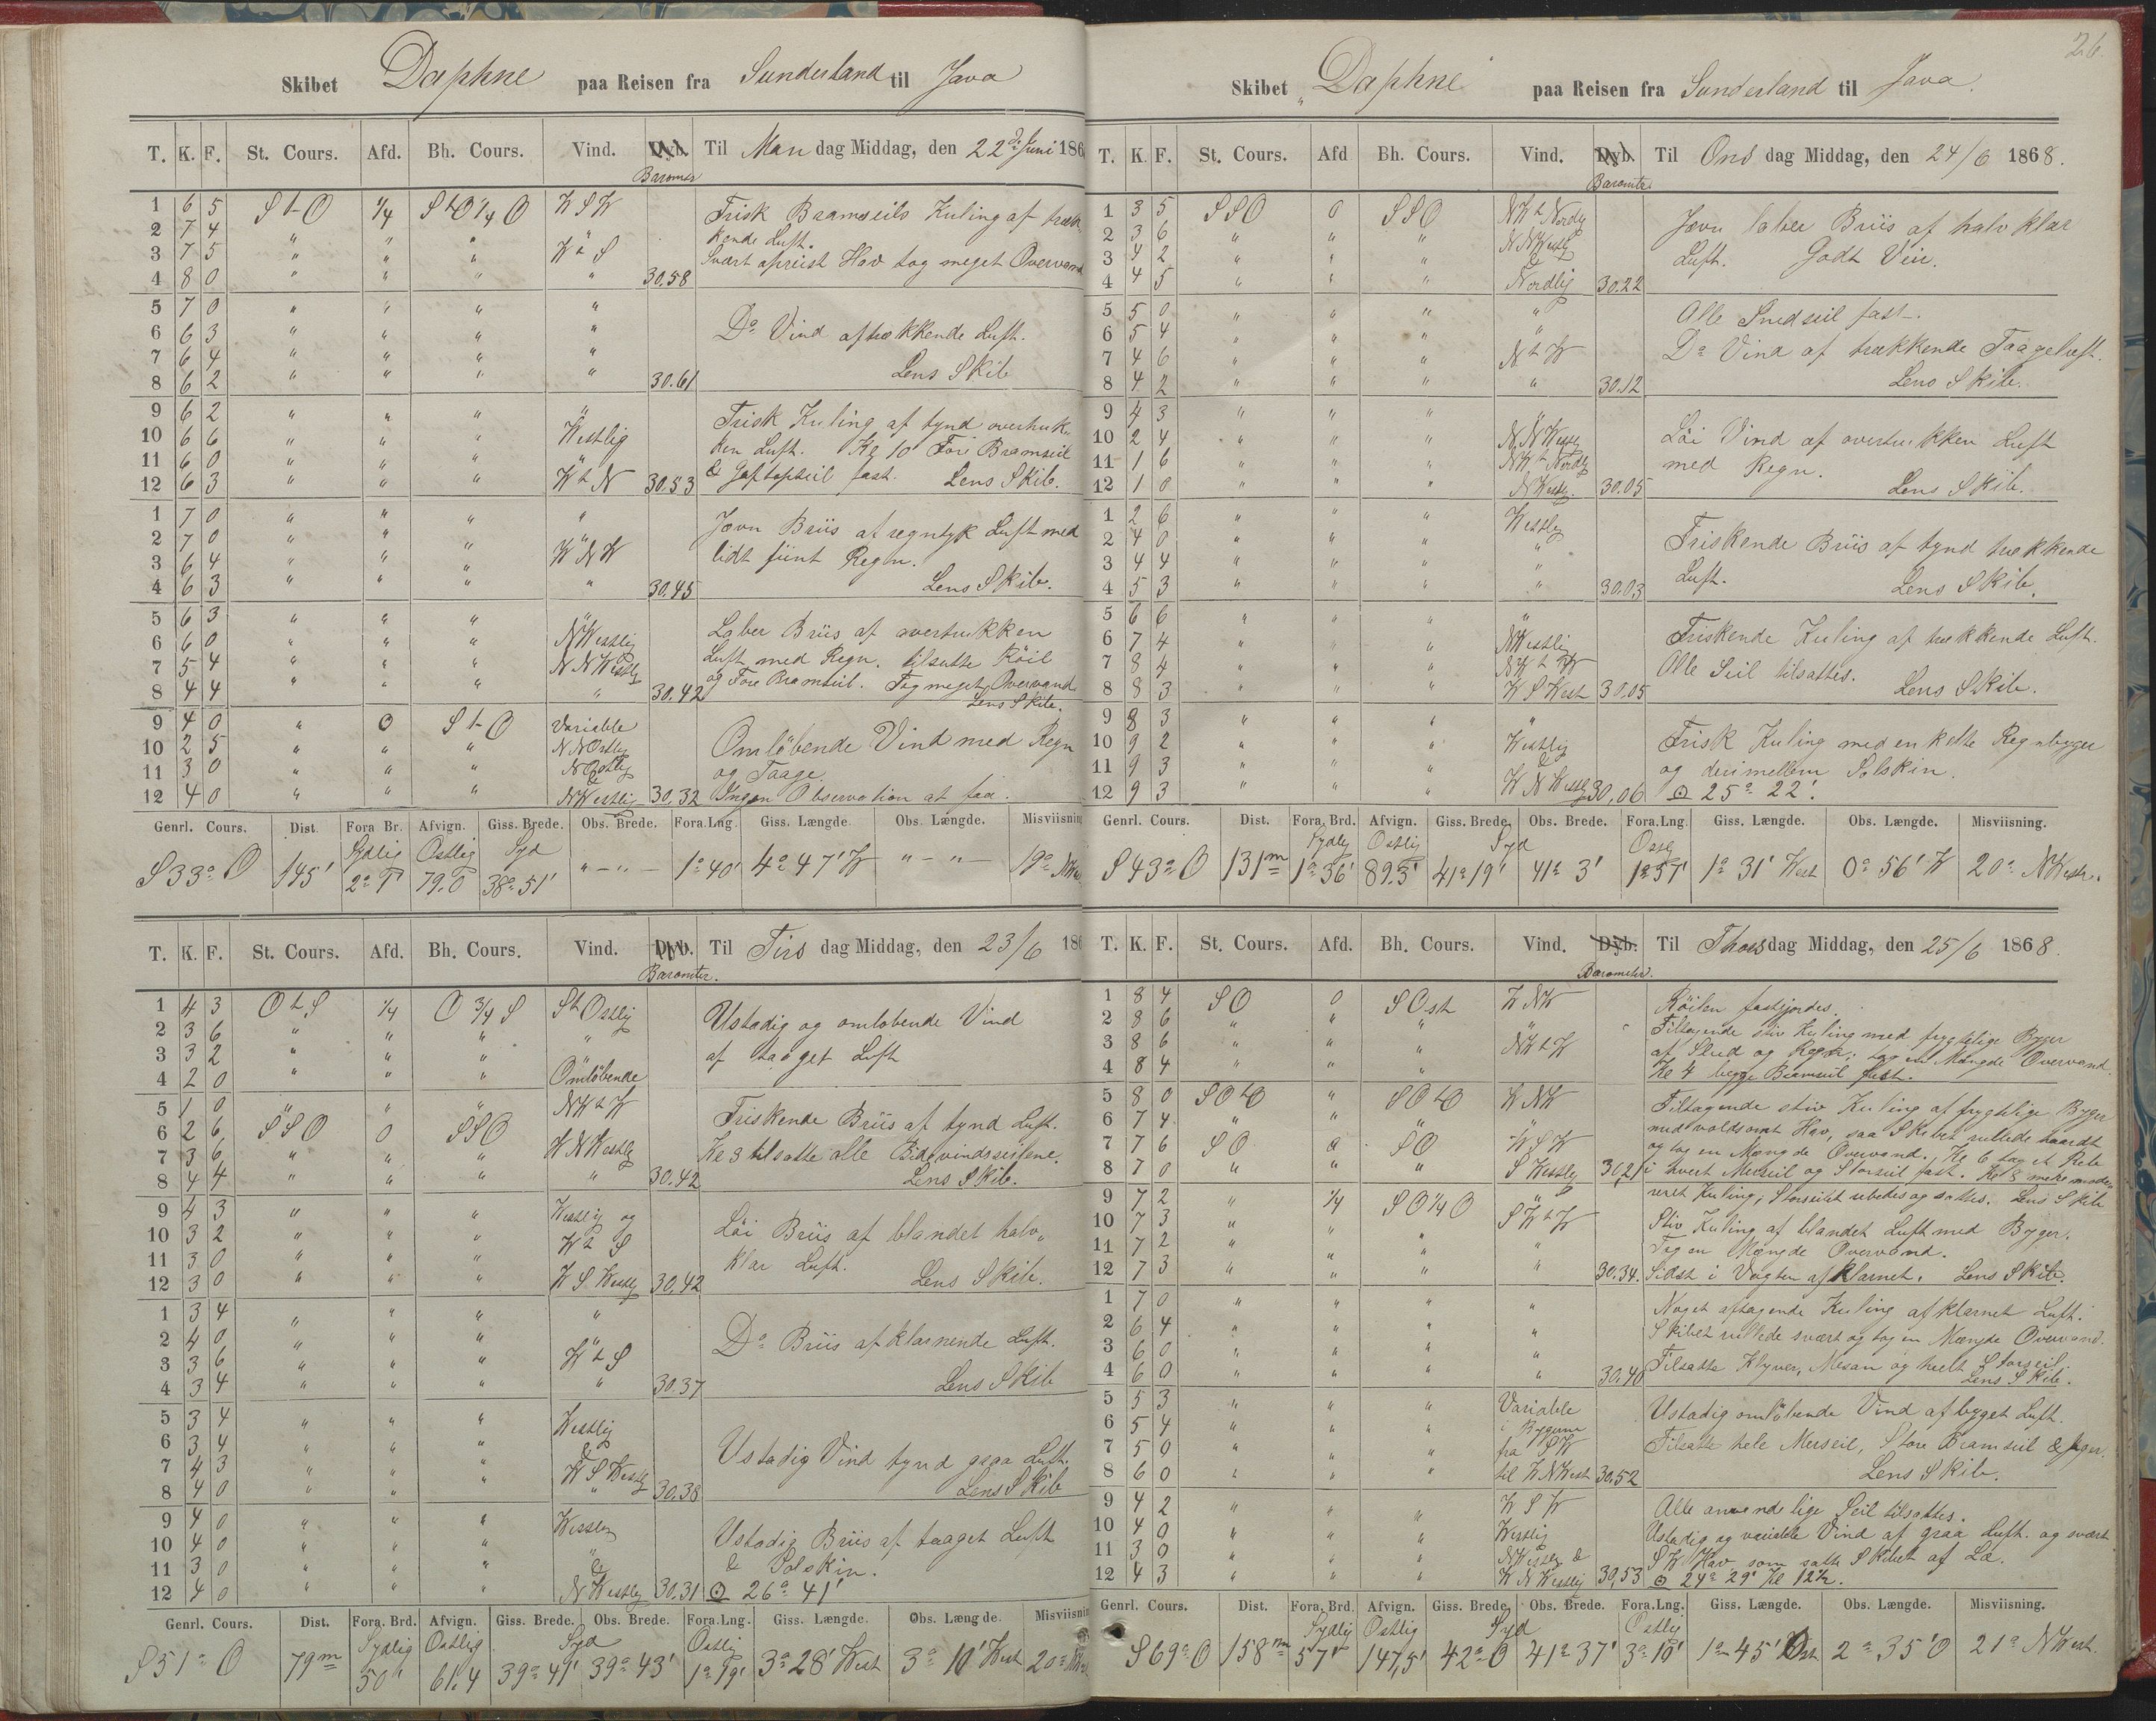 Skibet Daphne paa Reisen fra Sunderland til Java
T. K. F. St. Cours. Afd. Bh. Cours. Vind. Dyb. Til Mandag Middag, den 22d Juni 186
Baromer
1 6 5 S t O 1/4 S t O 1/4 O W S W Frisk Bramseils Kuling af træk-
2 7 4 " " " " kende Luft.
3 7 5 " " " W t S Svært opreist Hav tog meget Overvand
4 8 0 " " " " 30.58
5 7 0 " " " "
6 6 3 " " " " Do Vind aftrækkende Luft.
7 6 4 " " " " Lens Skib
8 6 2 " " " " 30.61
9 6 2 " " " " Frisk Kuling af tynd overtruk-
10 6 6 " " " Westlig ken Luft. Kl 10 Fore Bramseil
11 6 0 " " " & Gaftopseil fast. Lens Skib.
12 6 3 " " " W t N 30.53
1 7 0 " " " " Jevn Briis af regntyk Luft med
2 7 0 " " " W N W lidt fiint Regn.
3 6 4 " " "
4 6 3 " " " " 30.45 Lens Skib.
5 6 3 " " " " Laber Briis af overtrukken
6 6 0 " " " NWestlig Luft med Regn. tilsatte Röil
7 5 4 " " " NNWestlig og Fore Bramseil. Tog meget Overvand
8 4 4 " " " " 30.42 Lens Skib.
9 4 0 " 0 S t O Variable Omlöbende Vind med Regn
10 2 5 " " " NNOstlig og Taage.
11 3 0 " " " NOstlig &
12 4 0 " " " NWestlig 30.32 Ingen Observation at faa.
Genrl. Cours. Dist. Fora Br. Afvign. Giss. Brede. Obs. Brede. Fora.Lng. Giss. Længde. Obs. Længde. Misviisning
Sydlig Ostlig Syd
S 33° O 145' 2° 1' 79.0 38° 51' " — " — 1° 40' 4° 47' W " — " — 19° NW
T. K. F. St. Cours. Afd. Bh. Cours. Vind. Dyb. Til Tirsdag Middag, den 23/6 186
Barometer.
1 4 3 O t S 1/4 O 3/4 S S t Ostlig Ustadig og omlobende Vind
2 3 6 " " " " af taaget Luft
3 3 2 " " "
4 2 0 " " " Omlöbende
5 1 0 " " " NW t W Friskende Briis af tynd Luft.
6 2 6 SSO 0 SSO Kl 3 tilsatte alle Bidevindsseilene.
7 3 6 " " " WNWestlig Lens Skib.
8 4 4 " " " " 30.42
9 4 3 " " " Westlig og Löi Briis af blandet halv„
10 3 2 " " " W t S klar Luft.
11 3 0 " " " Lens Skib.
12 3 0 " " " W S Westlig 30.42
1 3 4 " " " "
2 4 0 " " " " Do Briis afklarnende Luft.
3 3 6 " " " W t S
4 3 4 " " " " 30.37 Lens Skib
5 3 4 " " " Westlig
6 3 4 " " " & Ustadig Vind tynd graa Luft.
7 4 3 " " " W S Westlig Lens Skib
8 4 0 " " " " 30.38
9 4 0 " " " Westlig Ustadig Briis af taaget Luft
10 4 0 " " " " & Solskin.
11 3 0 " " " &
12 4 0 " " " NWestlig 30.31 ☉ 26° 41'
Genrl. Cours. Dist. Fora. Brd. Afvign. Giss. Brede. Obs. Brede. Fora.Lng. Giss. Længde. Obs. Længde. Misviisnin
Sydlig Ostlig Syd Ostlig
S 51° O 79m 50' 61.4 39° 41' 39° 43' 1° 19' 3° 28' West 3° 10' West 20°
26.
Skibet „Daphne paa Reisen fra Sunderland til Java.
T. K. F. St. Cours. Afd Bh. Cours. Vind. Dyb. Til Onsdag Middag, den 24/6 1868.
Baromter
1 3 5 SSO 0 SSO NW t Nordlig Jevn laber Briis af halv klar
2 3 6 " " " NNWestlig Luft. Godt Veir.
3 4 2 " " " &
4 4 5 " " " Nordlig 30.22
5 5 0 " " " " Alle Snedseil fast.
6 5 4 " " " " Do Vind af trækkende Taageluft.
7 4 6 " " " N t W
8 4 2 " " " " 30.12 Lens Skib.
9 4 3 " " " "
10 2 4 " " " NNWestlig Löi Vind af overtrukken Luft
11 1 6 " " " NW t Nordlig med Regn.
12 1 0 " " " NWestlig 30.05 Lens Skib.
1 2 6 " " " Westlig
2 4 0 " " " " Friskende Briis af tynd trækkende
3 4 4 " " " " Luft.
4 5 3 " " " " 30.03 Lens Skib.
5 6 6 " " " " Friskende Kuling af trækkende Luft.
6 7 4 " " " NWestlig Alle Seil tilsattes.
7 8 4 " " " NW t W
8 8 3 " " " W S West 30.05 Lens Skib.
9 8 3 " " " "
10 9 2 " " " Westlig Frisk Kuling med enkelte Regnbyger
11 9 3 " " " & og derimellem Solskin.
12 9 3 " " " W N Westlig 30,06 ☉ 25° 22'.
Genrl. Cours. Dist. Fora. Brd. Afvign. Giss. Brede. Obs. Brede. Fora.Lng. Giss. Længde. Obs. Længde. Misviisning.
Sydlig Ostlig Syd Ostlig
S 43° O 131m 1° 36' 89.5' 41° 19' 41° 3' 1° 57' 1° 31' West 0° 56' W 20° NWestr.
T. K. F. St. Cours. Afd. Bh. Cours. Vind. Dyb. Til Thorsdag Middag, den 25/6 1868.
Barometer.
1 8 4 SO 0 SOst W NW Röilen fastgjordes.
2 8 6 " " " " Tiltagende stiv Kuling med frygtelige Byger
3 8 6 " " " NW t W af Slud og Regn; tog en Mængde Overvand.
4 8 4 " " " Kl 4 begge Bramseil fast.
5 8 0 SO t O " SO t O W NW Tiltagende stiv Kuling af frygtelige Byger
6 7 4 " " " " med voldsomt Hav, saa Skibet rullede haardt
7 7 6 SO " SO W S W og tog en Mængde Overvand. Kl 6 tog et Reb
8 7 0 " " " S Westlig 30,21 i hvert Merseil og Storseil fast. Kl 8 mere mode-
9 7 2 " 1/4 SO 1/4 O " reret Kuling; Storseilet rebedes og sattes. Lens Skib
10 7 3 " " SW t W Stiv Kuling af blandet Luft med Byger.
11 7 2 " " " " Tog en Mængde Overvand.
12 7 3 " " " " 30.34. Sidst i Vagten afklarnet. Lens Skib.
1 7 0 " " " " Noget aftagende Kuling afklarnet Luft.
2 6 4 " " " " Skibet rullede svært og tog en Mængde Overvand.
3 6 0 " " " " Tilsatte Klyver, Mesan og heelt Storseil.
4 6 0 " " " " 30.40 Lens Skib.
5 5 3 " " " Variable Ustadig omlöbende Vind af byget Luft.
6 5 4 " " " i Bygerne Tilsatte hele Merseil, Store Bramseil &
7 5 0 " " " fra SW
8 6 0 " " " til W N West 30.52 Lens Skib.
9 4 2 " " " W S W Alle anvendelige Seil tilsattes.
10 4 0 " " " Westlig Ustadig og variable Vind af graa Luft. og svært
11 3 0 " " " NWestlig & SW Hav som satte Skibet af Læ.
12 4 3 " " " W N Westlig 30,53 ☉ 24° 29' Kl 12½.
Genrl. Cours. Dist. Fora. Brd. Afvign. Giss. Brede. Obs. Brede. Fora.Lng. Giss. Længde. Obs. Længde. Misviisning.
Sydlig Ostlig Syd Ostlig
S 69° O 158m 57' 147,5' 42° 0 41° 37' 3° 10' 1° 45' Ost 2° 35' O 21° NWest.